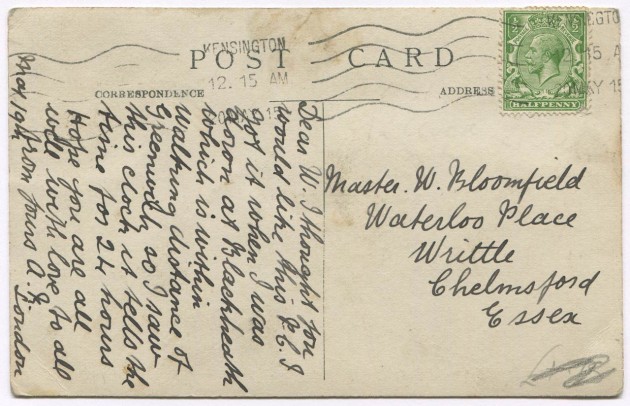 POST CARD
CORRESPONDENCE
ADDRESS
KENSINGTON
12. 15 AM
MY 15
KENSINGTON
15 A
MY 15
HALFPENNY
Dear W. I thought you
would like this P.C. I
got it when I was
down at Blackheath
which is within
Walking distance of
Greenwich so I saw
this clock it tells the
time for 24 hours
Hope you are all
well with love to all
from yours A.
London
Master. W. Bloomfield
Waterloo Place
Writtle
Chelmsford
Essex